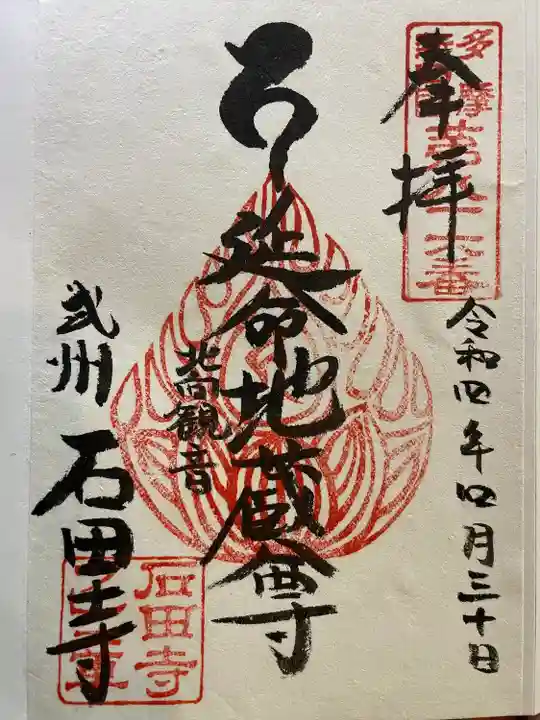 奉拝
多摩
第六十六番
令和四年四月三十日
延命地蔵尊
北向観音
武州
石田寺
石田寺